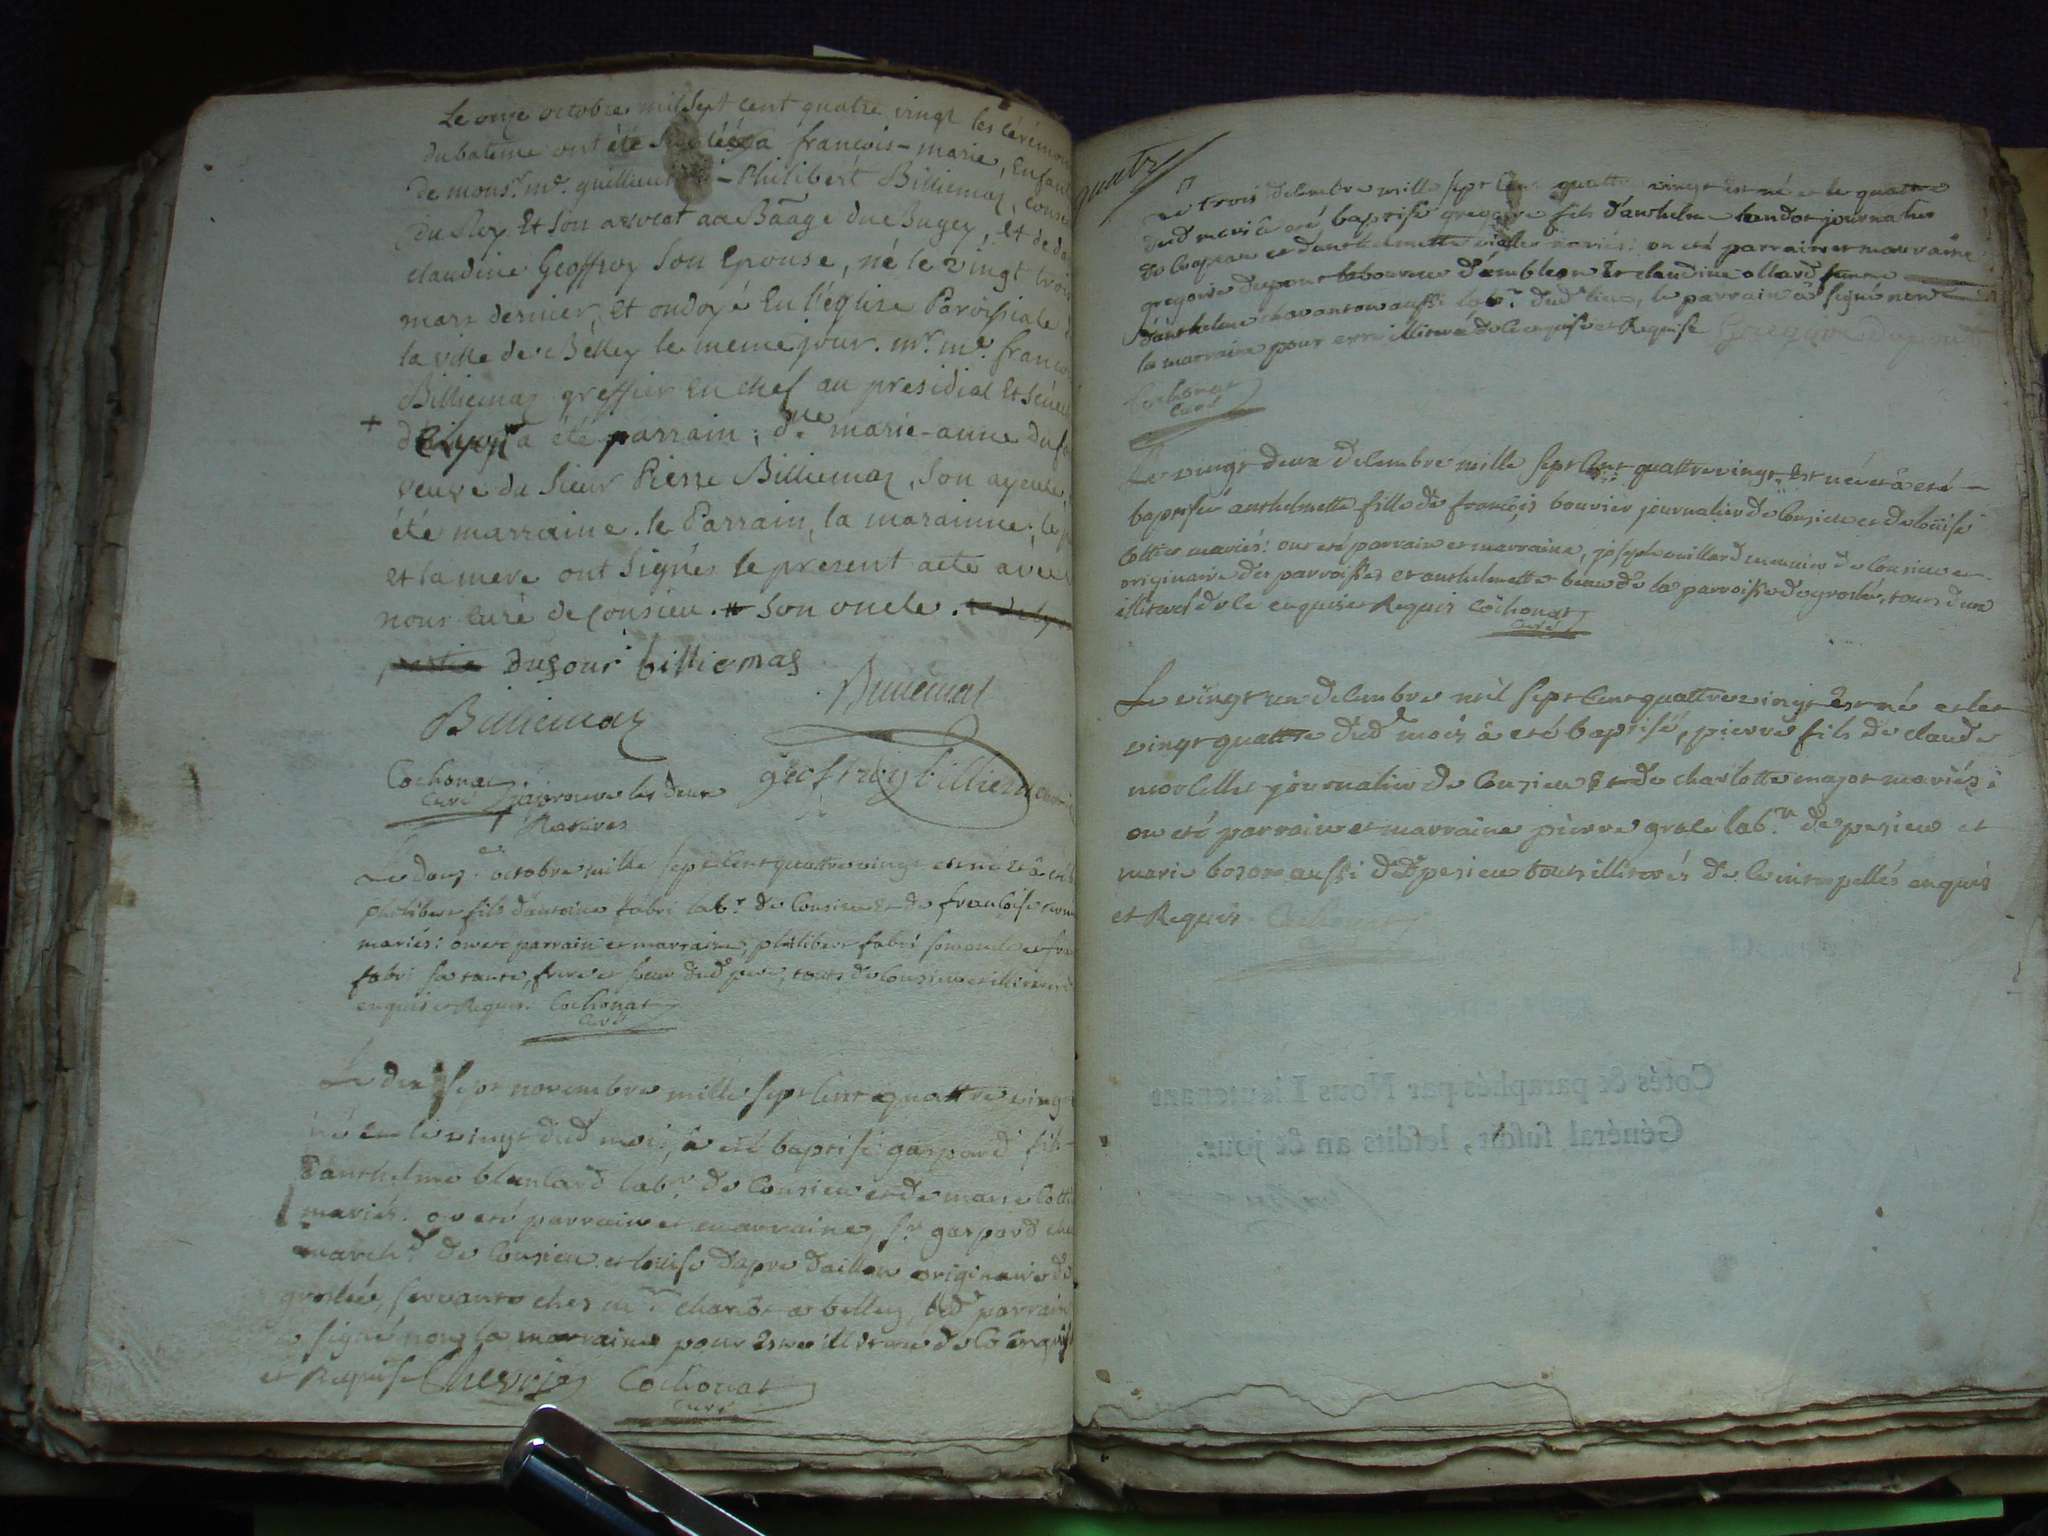 Le onze octobre mil sept cent quatre vingt les cérémon
du bateme ont été à françois-marie, Enfant
de monsr. me. - Philibert Billiemaz, conse
du Roy Et son avocat au Baage du Bugey, et de d
claudine Geoffroy son Epouse, né le vingt trois
mars dernier, et ondoyé En l'église Paroissiale
la ville de Belley le meme jour. mr. me. françoi
Billiemaz greffier en chef au presidial Et Séné
+ de Lyon a été parrain; dme. marie-anne duf
veuve du sieur Pierre Billiemaz, son ayeule,
été marraine. le Parrain, la marainne, le p
et la mere ont signés le present acte avec
nous curé de Consieu. son oncle.
dufour billiemaz
Billiemaz
Billiemaz
Cochonat geoffroy billiemaz
curé j'approuve les deux
Ratures
Le douze octobre mille sept cent quattre vingt est né et à été
philibert fils d'antoine fabri labr. de Consieu et de françoise
mariés: ont été parrain et marraine, philibert fabri son oncle et
fabri sa tante, frere et soeur dud pere, touts de Consieu et illiterés
enquis et Requis. Cochonat
curé
Le dix sept novembre mille sept cent quattre vingt
né et le vingt dud mois, à été baptisé gaspard fils
d'anthelme blanlard labr. de Consieu et de marie Cotti
mariés: ont été parrain et marraine, sr. gaspard che
marchd. de Consieu et louise originaire de
groslée, servante chez mr. a belley, led parrain
a signé non la marraine pour etre illiterée de ce enquise
et Requise Chevrier Cochonat
curé
quatre
Le trois decembre mille sept cent quattre vingt est né et le quatre
dud mois a eté baptisé gregoire fils d'anthelme journalier
de et d'anthelmette mariés: on eté parrain et marraine
gregoire dupont laboureur d'ambleon Et claudine ollard femme
d'anthelme chavanton aussi labr. dud lieu, le parrain à signé non
la marraine pour etre illiterée de ce enquise et Requise Gregoire Dupon
Cochonat
curé
Le vingt deux decembre mille sept cent quattre vingt est née et à eté
baptisée anthelmette fille de françois bouvier journalier de Consieu et de loüise
Cottier mariés: ont eté parrain et marraine, joseph meunier de Consieu et
originaire des parroisses et anthelmette de la parroisse de groslée, touts deux
illiterés de ce enquis et Requis Cochonat
curé
Le vingt un decembre mil sept cent quattre vingt est né et le
vingt quattre dud mois à eté baptisé, pierre fils de claude
morellet journalier de Consieu Et de charlotte major mariés:
on eté parrain et marraine pierre grole labr. de pezieu et
marie bozon aussi de pezieu touts illiterés de ce interpellés enquis
et Requis Cochonat
Cotés & paraphés par Nous Lieutenant
Général susdit, lesdits an & jour.